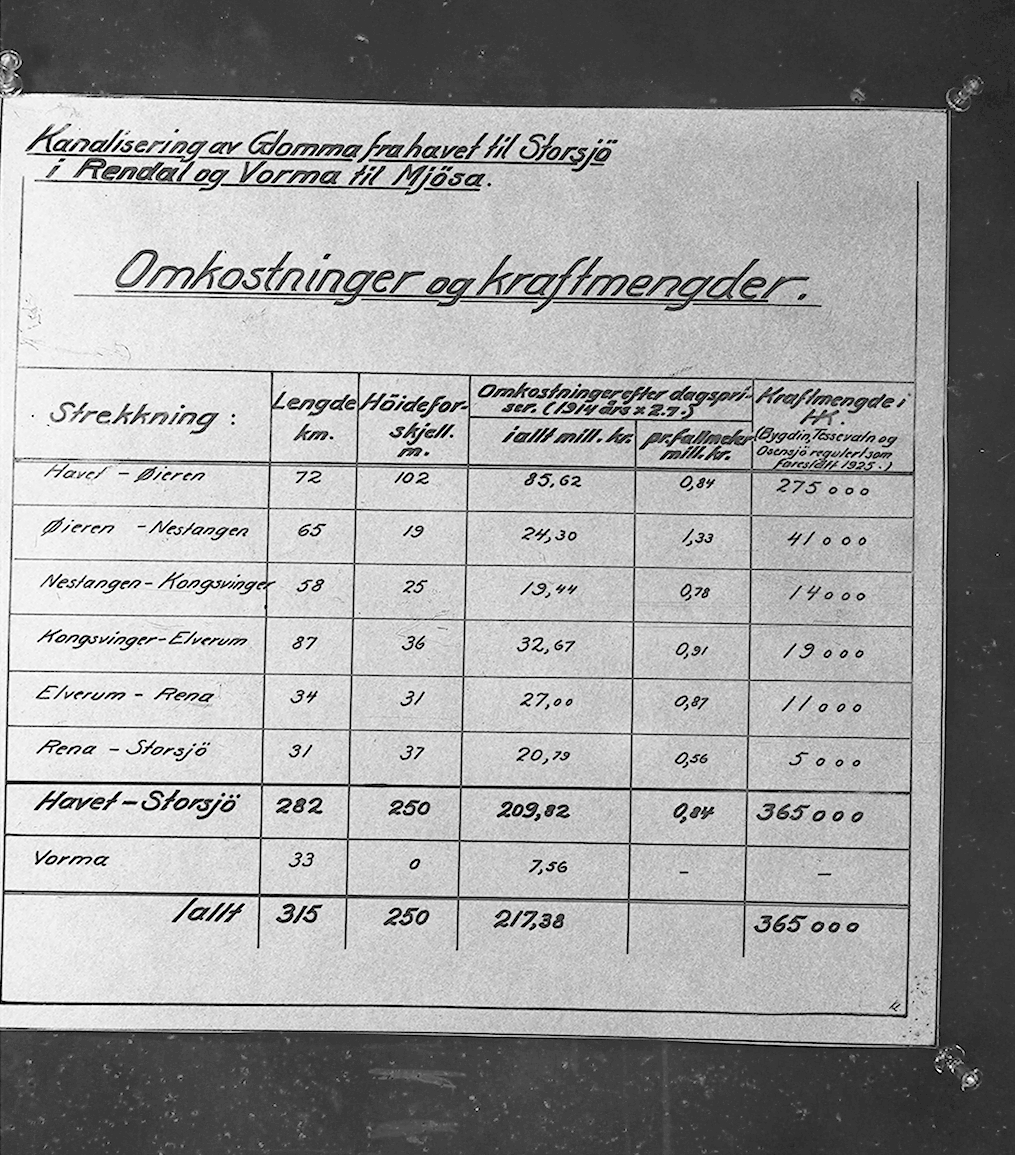 Kanalisering av Glomma fra havet til Storsjö
i Rendal og Vorma til Mjösa.
Omkostninger og kraftmengder.
Strekkning :
Lengde
km.
Höidefor-
skjell.
m.
Omkostninger efter dagspri-
ser. (1914 års x 2.7.)
ialt mill. kr.
pr. fallmeter
mill. kr.
Kraftmengde i
HK.
(Bygdin, Tessevatn og
Osensjö regulert som
foreslått 1925.)
Havet - Øieren 72 102 85,62 0,84 275 000
Øieren - Nestangen 65 19 24,30 1,33 41 000
Nestangen - Kongsvinger 58 25 19,44 0,78 14 000
Kongsvinger - Elverum 87 36 32,67 0,91 19 000
Elverum - Rena 34 31 27,00 0,87 11 000
Rena - Storsjö 31 37 20,79 0,56 5 000
Havet - Storsjö 282 250 209,82 0,84 365 000
Vorma 33 0 7,56 – –
Ialt 315 250 217,38 365 000